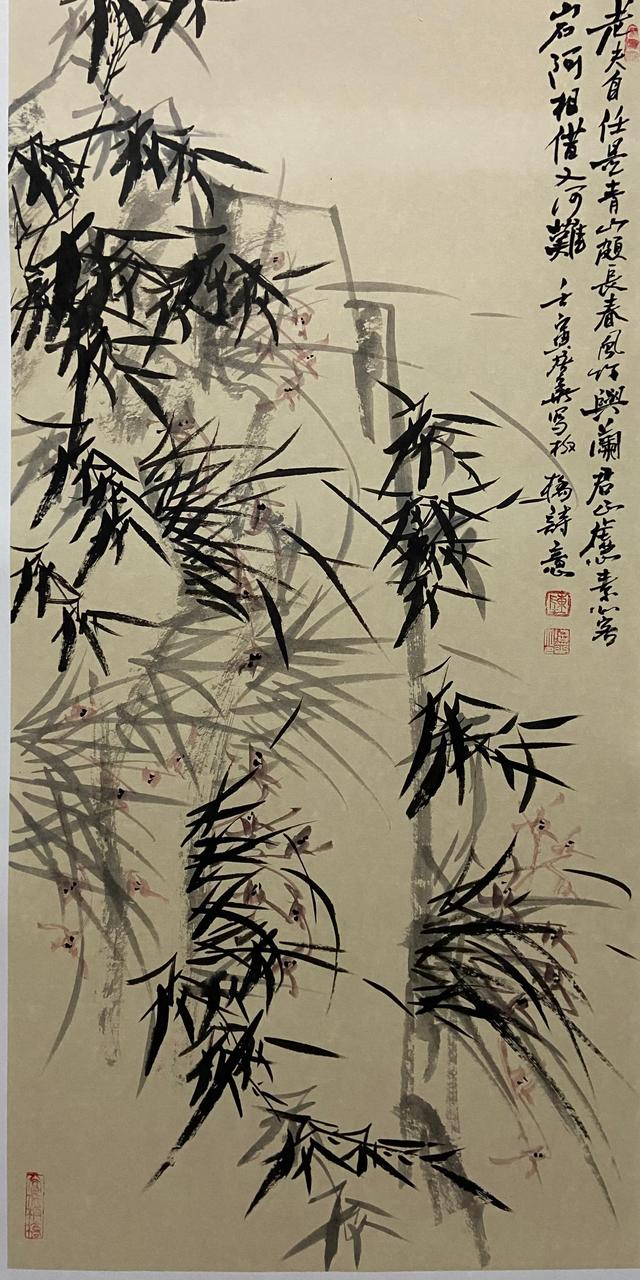 老夫自任是青山頗長春風竹與蘭君正虛心素心客
岩阿相借又何難 壬寅 写板橋詩意